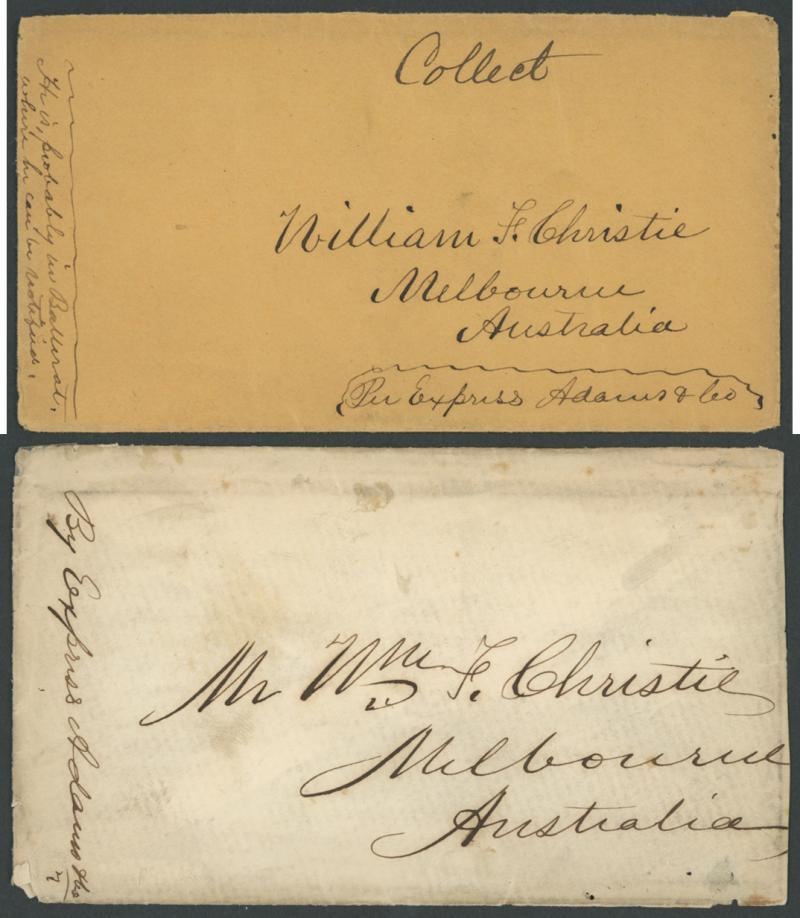 Collect
William F. Christie
Melbourne
Australia
Per Express Adams & Co
He is, probably in Ballerat,
where he can be notified.
Mr Wm F. Christie
Melbourne
Australia
By Express Adams